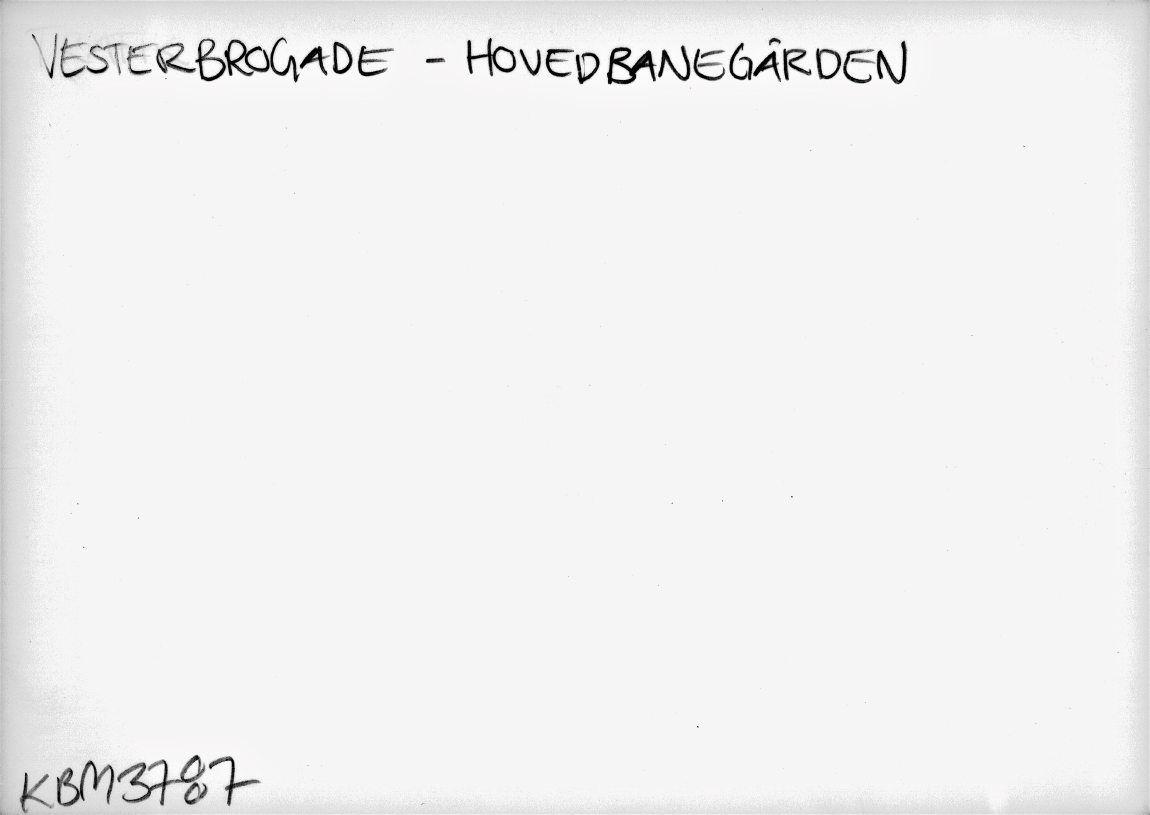 VESTERBROGADE - HOVEDBANEGÅRDEN
KBM3787